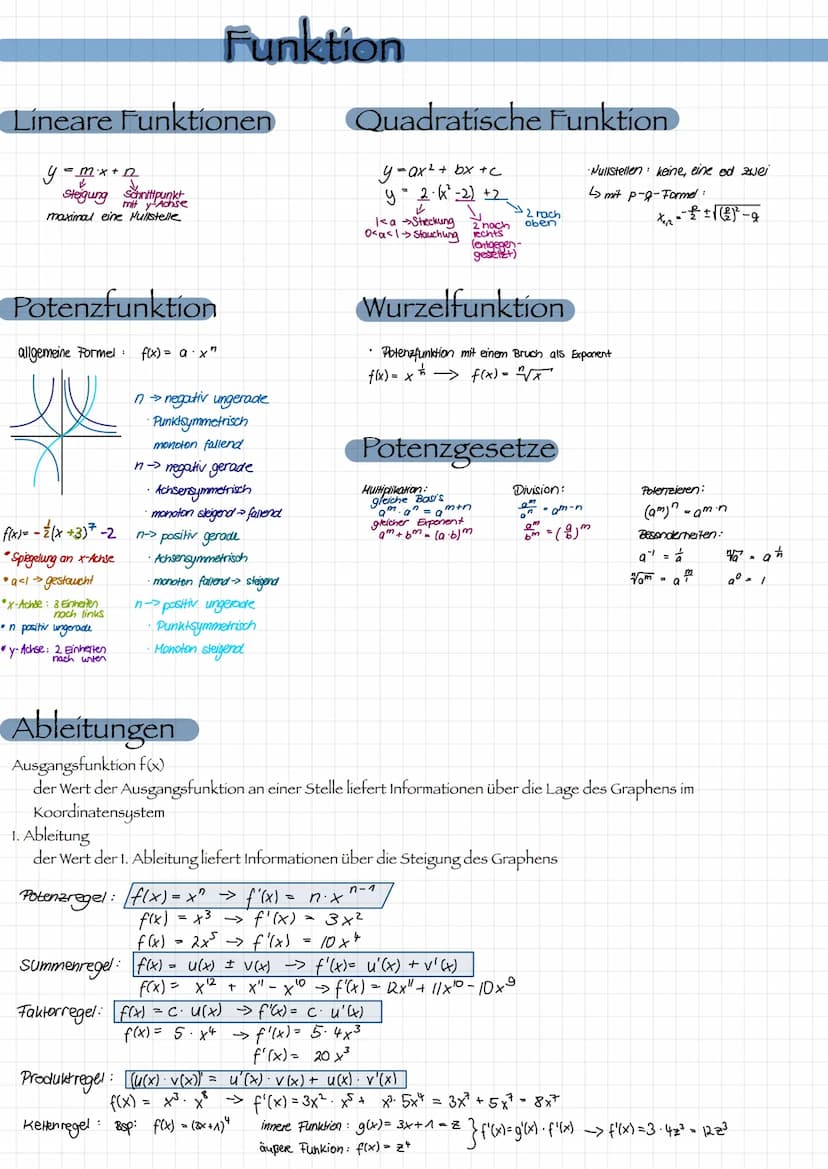 Funktion
Lineare Funktionen
y = m·x + n
Steigung Schnittpunkt mit y-Achse
maximal eine Nullstelle
Quadratische Funktion
y = ax² + bx + c
y = 2·(x² -2) +2
1<a → Streckung
0<a<1 → Stauchung
2 nach rechts
(entgegen-
gesetzt)
2 nach oben
· Nullstellen: keine, eine od zwei
↳ mit p-q-Formel:
x₁,₂ = -p/2 ± √((p/2)² - q)
Potenzfunktion
allgemeine Formel: f(x) = a · xⁿ
n → negativ ungerade
· Punktsymmetrisch
monoton fallend
n → negativ gerade
· Achsensymmetrisch
· monoton steigend → fallend
n → positiv gerade
· Achsensymmetrisch
· monoton fallend → steigend
n → positiv ungerade
· Punktsymmetrisch
· Monoton steigend
f(x) = -½(x +3)⁷ -2
• Spiegelung an x-Achse
• a<1 → gestaucht
• x-Achse: 3 Einheiten
nach links
• n positiv ungerade
• y-Achse: 2 Einheiten
nach unten
Wurzelfunktion
· Potenzfunktion mit einem Bruch als Exponent
f(x) = x^(1/n) → f(x) = ⁿ√x
Potenzgesetze
Multiplikation:
gleiche Basis
aᵐ · aⁿ = aᵐ⁺ⁿ
gleicher Exponent
aᵐ + bᵐ = (a·b)ᵐ
Division:
aᵐ/aⁿ = aᵐ⁻ⁿ
aᵐ/bᵐ = (a/b)ᵐ
Potenzieren:
(aᵐ)ⁿ = aᵐ·ⁿ
Besonderheiten:
a⁻¹ = 1/a ⁿ√a = a^(1/n)
a⁰ = 1
Ableitungen
Ausgangsfunktion f(x)
der Wert der Ausgangsfunktion an einer Stelle liefert Informationen über die Lage des Graphens im
Koordinatensystem
1. Ableitung
der Wert der 1. Ableitung liefert Informationen über die Steigung des Graphens
Potenzregel: f(x) = xⁿ → f'(x) = n·xⁿ⁻¹
f(x) = x³ → f'(x) = 3x²
f(x) = 2x⁵ → f'(x) = 10x⁴
Summenregel: f(x) = u(x) ± v(x) → f'(x) = u'(x) + v'(x)
f(x) = x¹² + x¹¹ - x¹⁰ → f'(x) = 12x¹¹ + 11x¹⁰ - 10x⁹
Faktorregel: f(x) = c · u(x) → f'(x) = c · u'(x)
f(x) = 5 · x⁴ → f'(x) = 5 · 4x³
f'(x) = 20x³
Produktregel: (u(x) · v(x))' = u'(x) · v(x) + u(x) · v'(x)
f(x) = x³ · x⁸ → f'(x) = 3x² · x⁵ + x³ · 5x⁴ = 3x⁷ + 5x⁷ = 8x⁷
Kettenregel: Bsp: f(x) = (3x+1)⁴ innere Funktion: g(x) = 3x+1 = z } f'(x) = g'(x) · f'(x) → f'(x) = 3 · 4z³ = 12z³
äußere Funkion: f(x) = z⁴